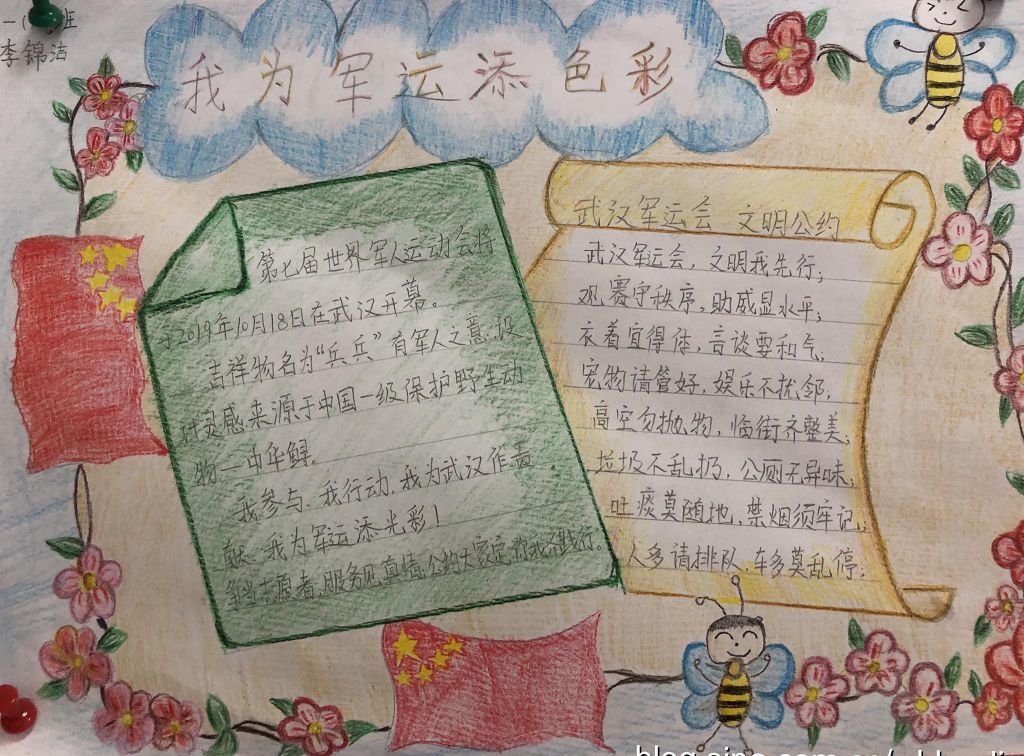 一( )班
李锦洁
我为军运添色彩
第七届世界军人运动会将
于2019年10月18日在武汉开幕。
吉祥物名为“兵兵”有军人之意,设
计灵感来源于中国一级保护野生动
物—中华鲟。
我参与,我行动,我为武汉作贡
献,我为军运添光彩!
争当志愿者,服务见真情,公约大家定,你我齐践行。
武汉军运会 文明公约
武汉军运会,文明我先行;
观赛守秩序,助威显水平;
衣着宜得体,言谈要和气;
宠物请管好,娱乐不扰邻;
高空勿抛物,临街齐整美;
垃圾不乱扔,公厕无异味;
吐痰莫随地,禁烟须牢记;
人多请排队,车多莫乱停;